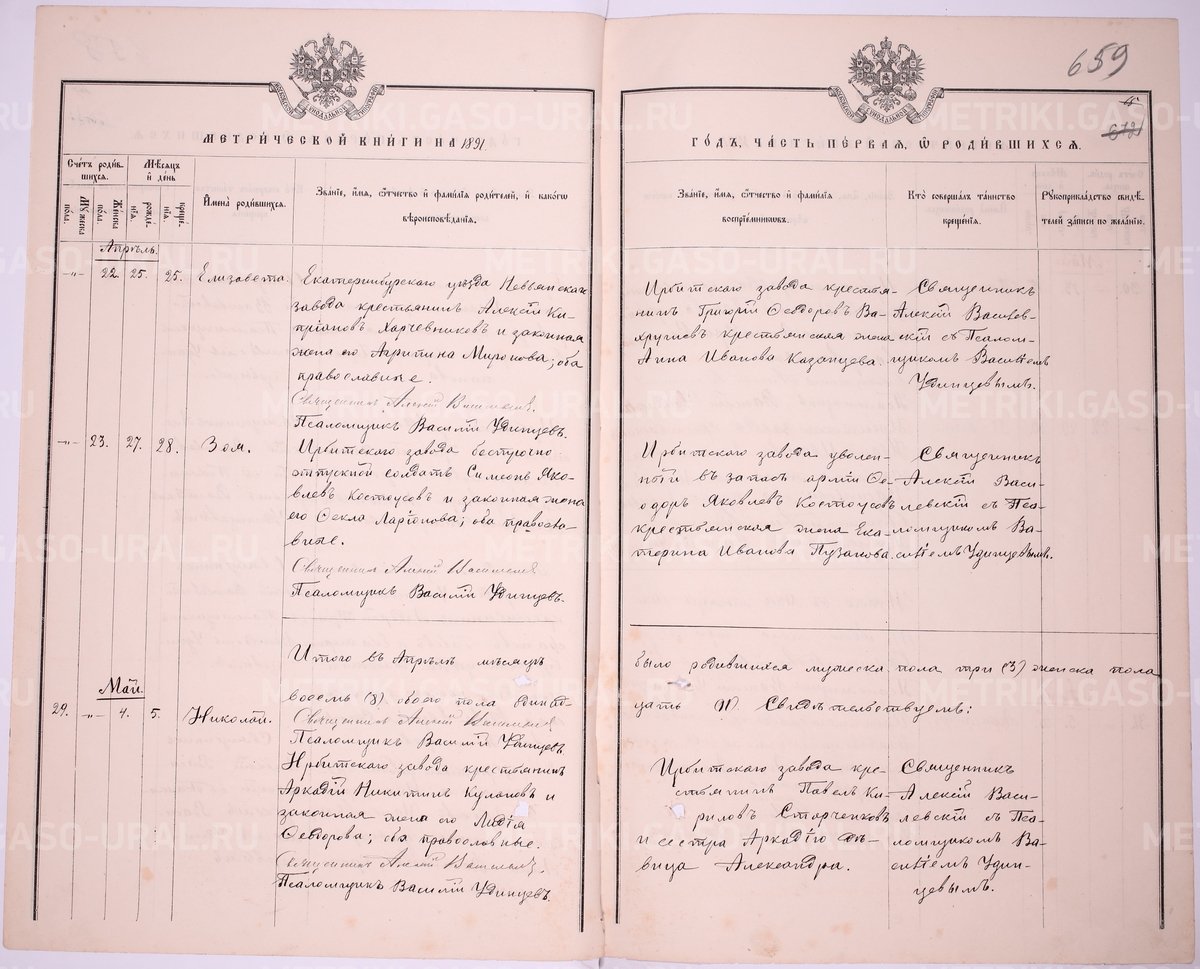 659
4
679
МЕТРИЧЕСКОЙ КНИГИ НА 1891
ГОДЪ, ЧАСТЬ ПЕРВАЯ, Ѿ РОДИВШИХСЯ.
Счетъ родив-
шихся.
Мѣсяцъ
и день
Мужеска
пола.
Женска
пола.
рожде-
нія.
креще-
нія.
Имена родившихся.
Званіе, имя, отчество и фамилія родителей, и какогѡ
вѣроисповѣданія.
Званіе, имя, отчество и фамилія
воспріемниковъ.
Кто совершалъ таинство
крещенія.
Рукоприкладство свидѣ-
телей записи по желанію.
Апрѣль.
-„- 22. 25. 25. Елизавета.
Екатеринбургскаго уѣзда Невьянскаго
завода крестьянинъ Алексій Ки-
пріановъ Харчевниковъ и законная
жена его Агрипина Миронова; оба
православные.
Священникъ Алексій Василевскій.
Псаломщикъ Василій Удинцевъ.
Ирбитскаго завода крестья-
нинъ Григорій Ѳеодоровъ Ва-
хрушевъ крестьянская жена
Анна Иванова Казанцева.
Священникъ
Алексій Василев-
скій съ Псалом-
щикомъ Василіемъ
Удинцевымъ.
-„- 23. 27. 28. Зоя.
Ирбитскаго завода безсрочно
отпускной солдатъ Симеонъ Яко-
влевъ Костоусовъ и законная жена
его Ѳекла Ларіонова; оба правосла-
вные.
Священникъ Алексій Василевскій
Псаломщикъ Василій Удинцевъ.
Ирбитскаго завода уволен-
ный въ запасъ арміи Ѳе-
одоръ Яковлевъ Костоусовъ
крестьянская жена Ека-
терина Иванова Пузанова.
Священникъ
Алексій Васи-
левскій съ Пса-
ломщикомъ Ва-
силіемъ Удинцевымъ.
Итого въ Апрѣлѣ мѣсяцѣ было родившихся мужеска пола три (3) женска пола
восемь (8). обоего пола одинад- цать 11. Свидѣтельствуемъ:
Священникъ Алексій Василевскій
Псаломщикъ Василій Удинцевъ.
Май.
29. -„- 4. 5. Николай.
Ирбитскаго завода крестьянинъ
Аркадій Никитинъ Кулаковъ и
законная жена его Лидія
Ѳеодорова; оба православные.
Священникъ Алексій Василевскій.
Псаломщикъ Василій Удинцевъ.
Ирбитскаго завода кре-
стьянинъ Павелъ Ки-
риловъ Старченковъ
и сестра Аркадію дѣ-
вица Александра.
Священникъ
Алексій Васи-
левскій съ Пса-
ломщикомъ Ва-
силіемъ Удин-
цевымъ.
METRIKI.GASO-URAL.RU